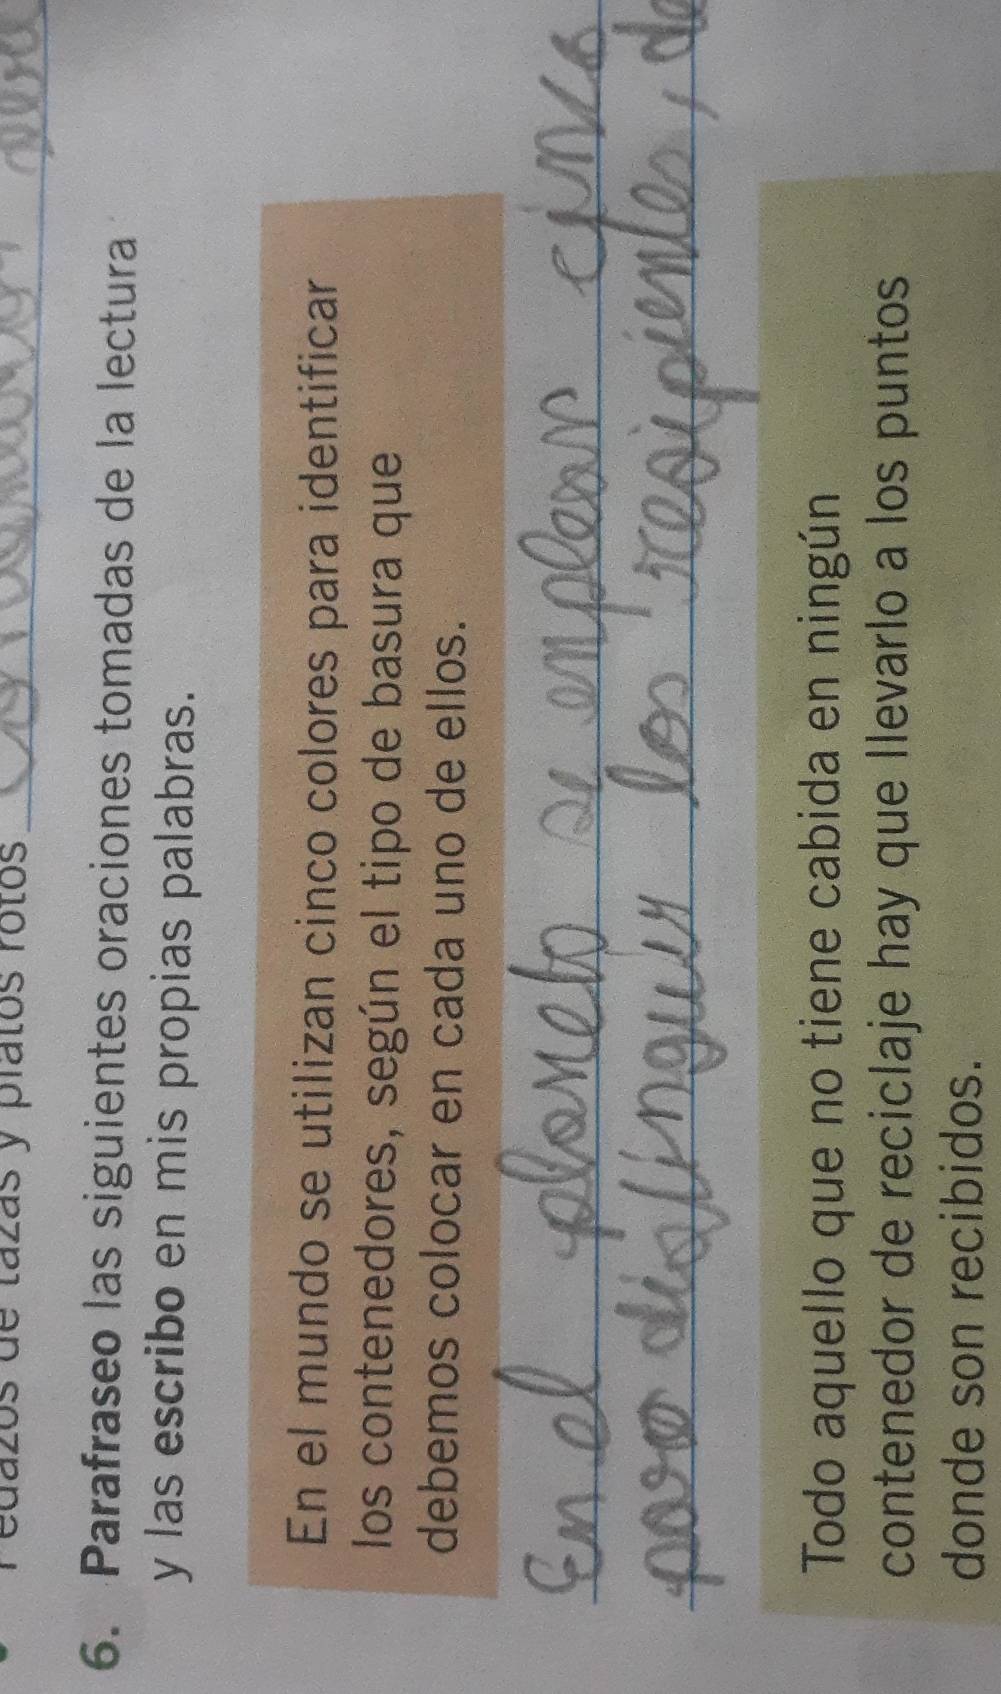 Pedazos de tazas y platos rotos
6. Parafraseo las siguientes oraciones tomadas de la lectura
y las escribo en mis propias palabras.
En el mundo se utilizan cinco colores para identificar
los contenedores, según el tipo de basura que
debemos colocar en cada uno de ellos.
En el planeta se emplean cinco
para distinguir los resipientes, de
Todo aquello que no tiene cabida en ningún
contenedor de reciclaje hay que llevarlo a los puntos
donde son recibidos.